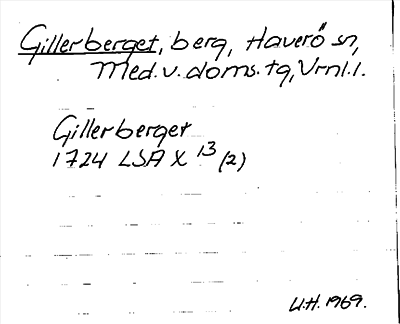 Gillerberget, berg, Haverö sn,
Med. v. doms. tg, Vrnl. l.
Gillerberget
1724 LSA X 13 (2)
U.H. 1969.